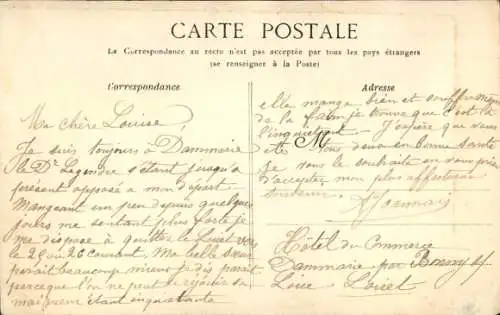 CARTE POSTALE
La Correspondance au recto n'est pas acceptée par tous les pays étrangers
(se renseigner à la Poste)
Correspondance
Adresse
Ma chère Louise,
Je suis toujours à Dammarie
le Dr Legendre s'étant jusqu'à
présent opposé a mon départ
Mangeant un peu depuis quelques
jours me sentant plus forte je
me dispose à quitter le Loiret vers
le 25 ou 26 courant. Ma belle sœur
parait beaucoup mieux je dis parait
parceque l'on ne peut se réjouir sa
maigreur étant inquiétante
elle mange bien et souffre
de la faim je trouve que c'est là
l'inquiétant J'espère que vous
êtes tous deux en bonne santé
je vous le souhaite en vous priant
d'accepter mon plus affectueux
souvenir.
M
Hôtel du Commerce
Dammarie par Bonny s/
Loire Loiret